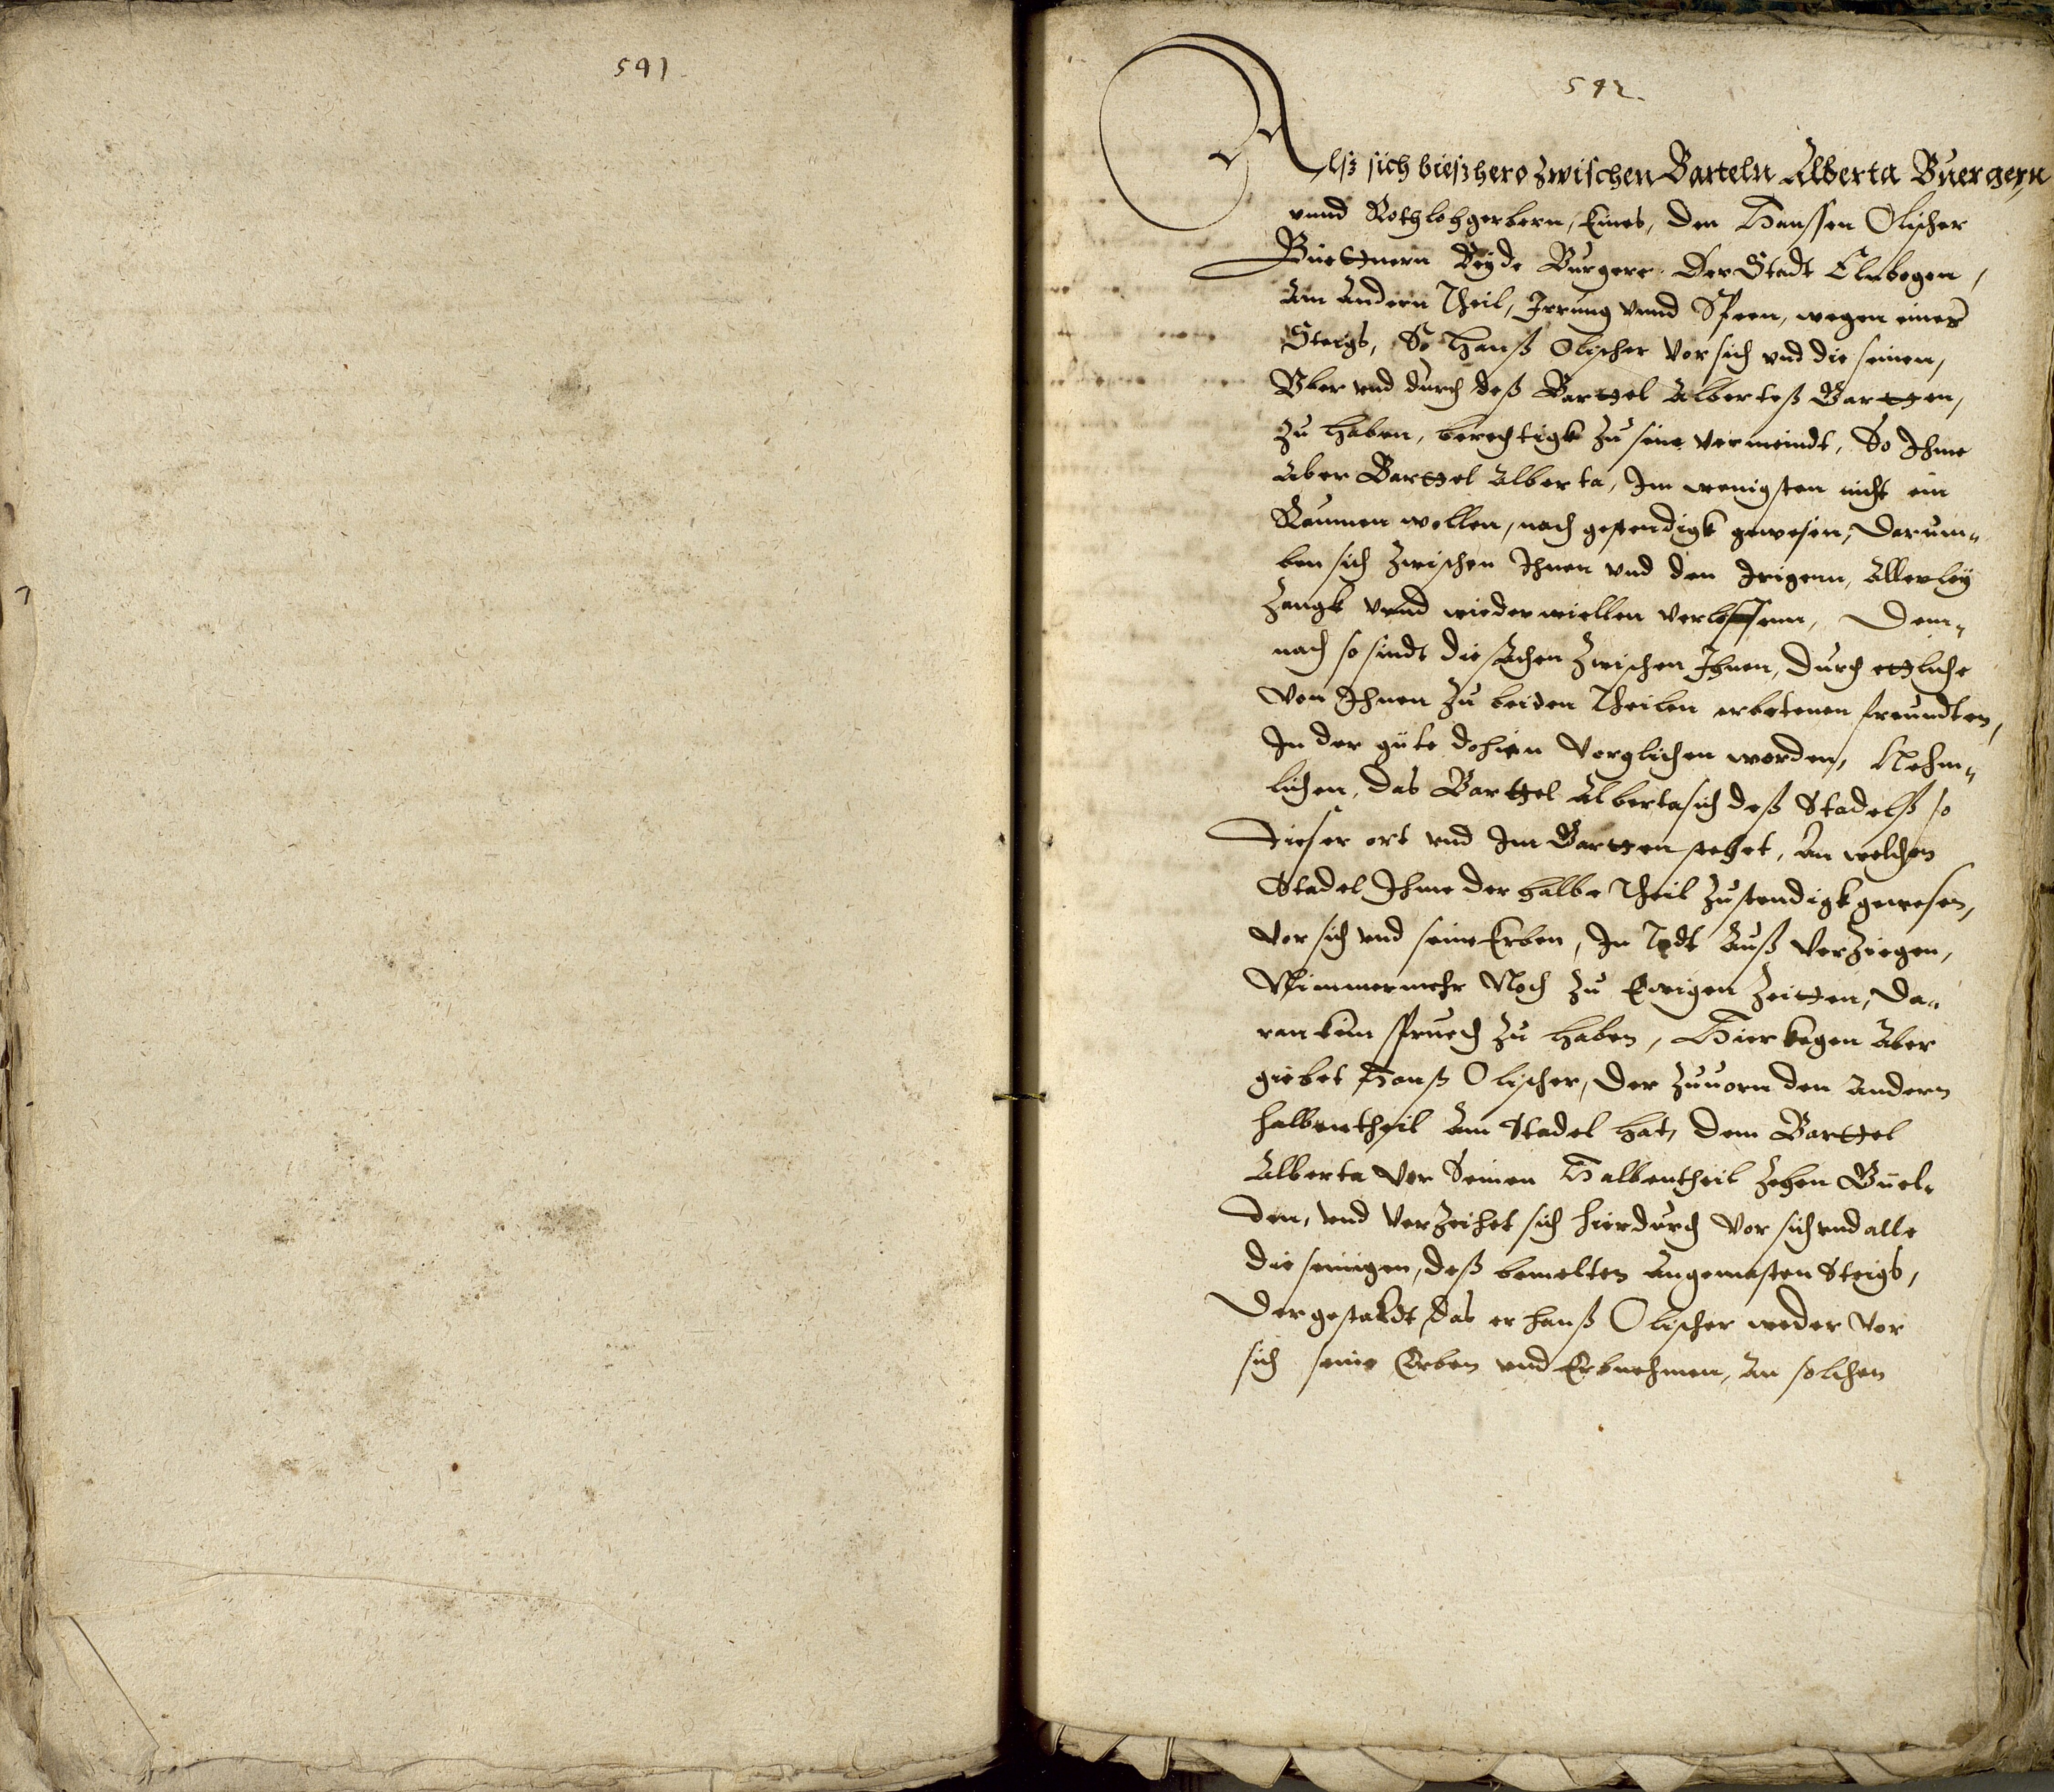 591
592.
Alsz sich bieszhero zwischen Barteln Alberta Buergern
vnnd Rothlohgerbern, Eines, den Hanssen Olischer
Buettnern Beyde Burgere Der Stadt Elnbogen,
Am Andern Theil, Irrung vnnd Speen, wegen eines
Steigs, So Hanß Olischer Vor sich vnd die seinen,
Vber vnd durch deß Barttel Albertaß Gartten,
zu haben, berechtigk zu sein vermeindt, So Ihme
Aber Barttel Alberta, Im wenigsten nicht ein
Raumen wollen, noch gestendigk gewesen, Darum„
ben sich zwischen Ihnen vnd den Irigenn, Allerley
Zangk vnnd wiederwiellen verloffenn, Dem„
nach so sindt die sachen zwischen Ihnen, durch ettliche
Von Ihnen zu beiden Theilen erbetenen freundten,
In der güte dohien Verglichen worden, Nehm„
lichen, das Barttel Alberta sich deß Stadelß so
dieser ort vnd Im Gartten stehet, An welchen
Stadel Ihme der halbe Theil zustendigk gewesen,
Vor sich vnd seine Erben, In Todt Auß Verziegen,
Nimmermehr Noch zu Ewigen Zeitten, Da„
ran kein spruch zu haben, Hierkegen Aber
giebet Hanß Olischer, der zuuorn den Andern
halbentheil Am Stadel hat, dem Barttel
Alberta Vor Seinen Halbentheil Zehen Guel„
den, vnd Verzeihet sich hierdurch Vor sich vnd alle
die seinigen, deß bemelten Angemasten Steigs,
Dergestaldt, das er Hanß Olischer weder Vor
sich seine Erben vnd Erbnehmen, An solchen